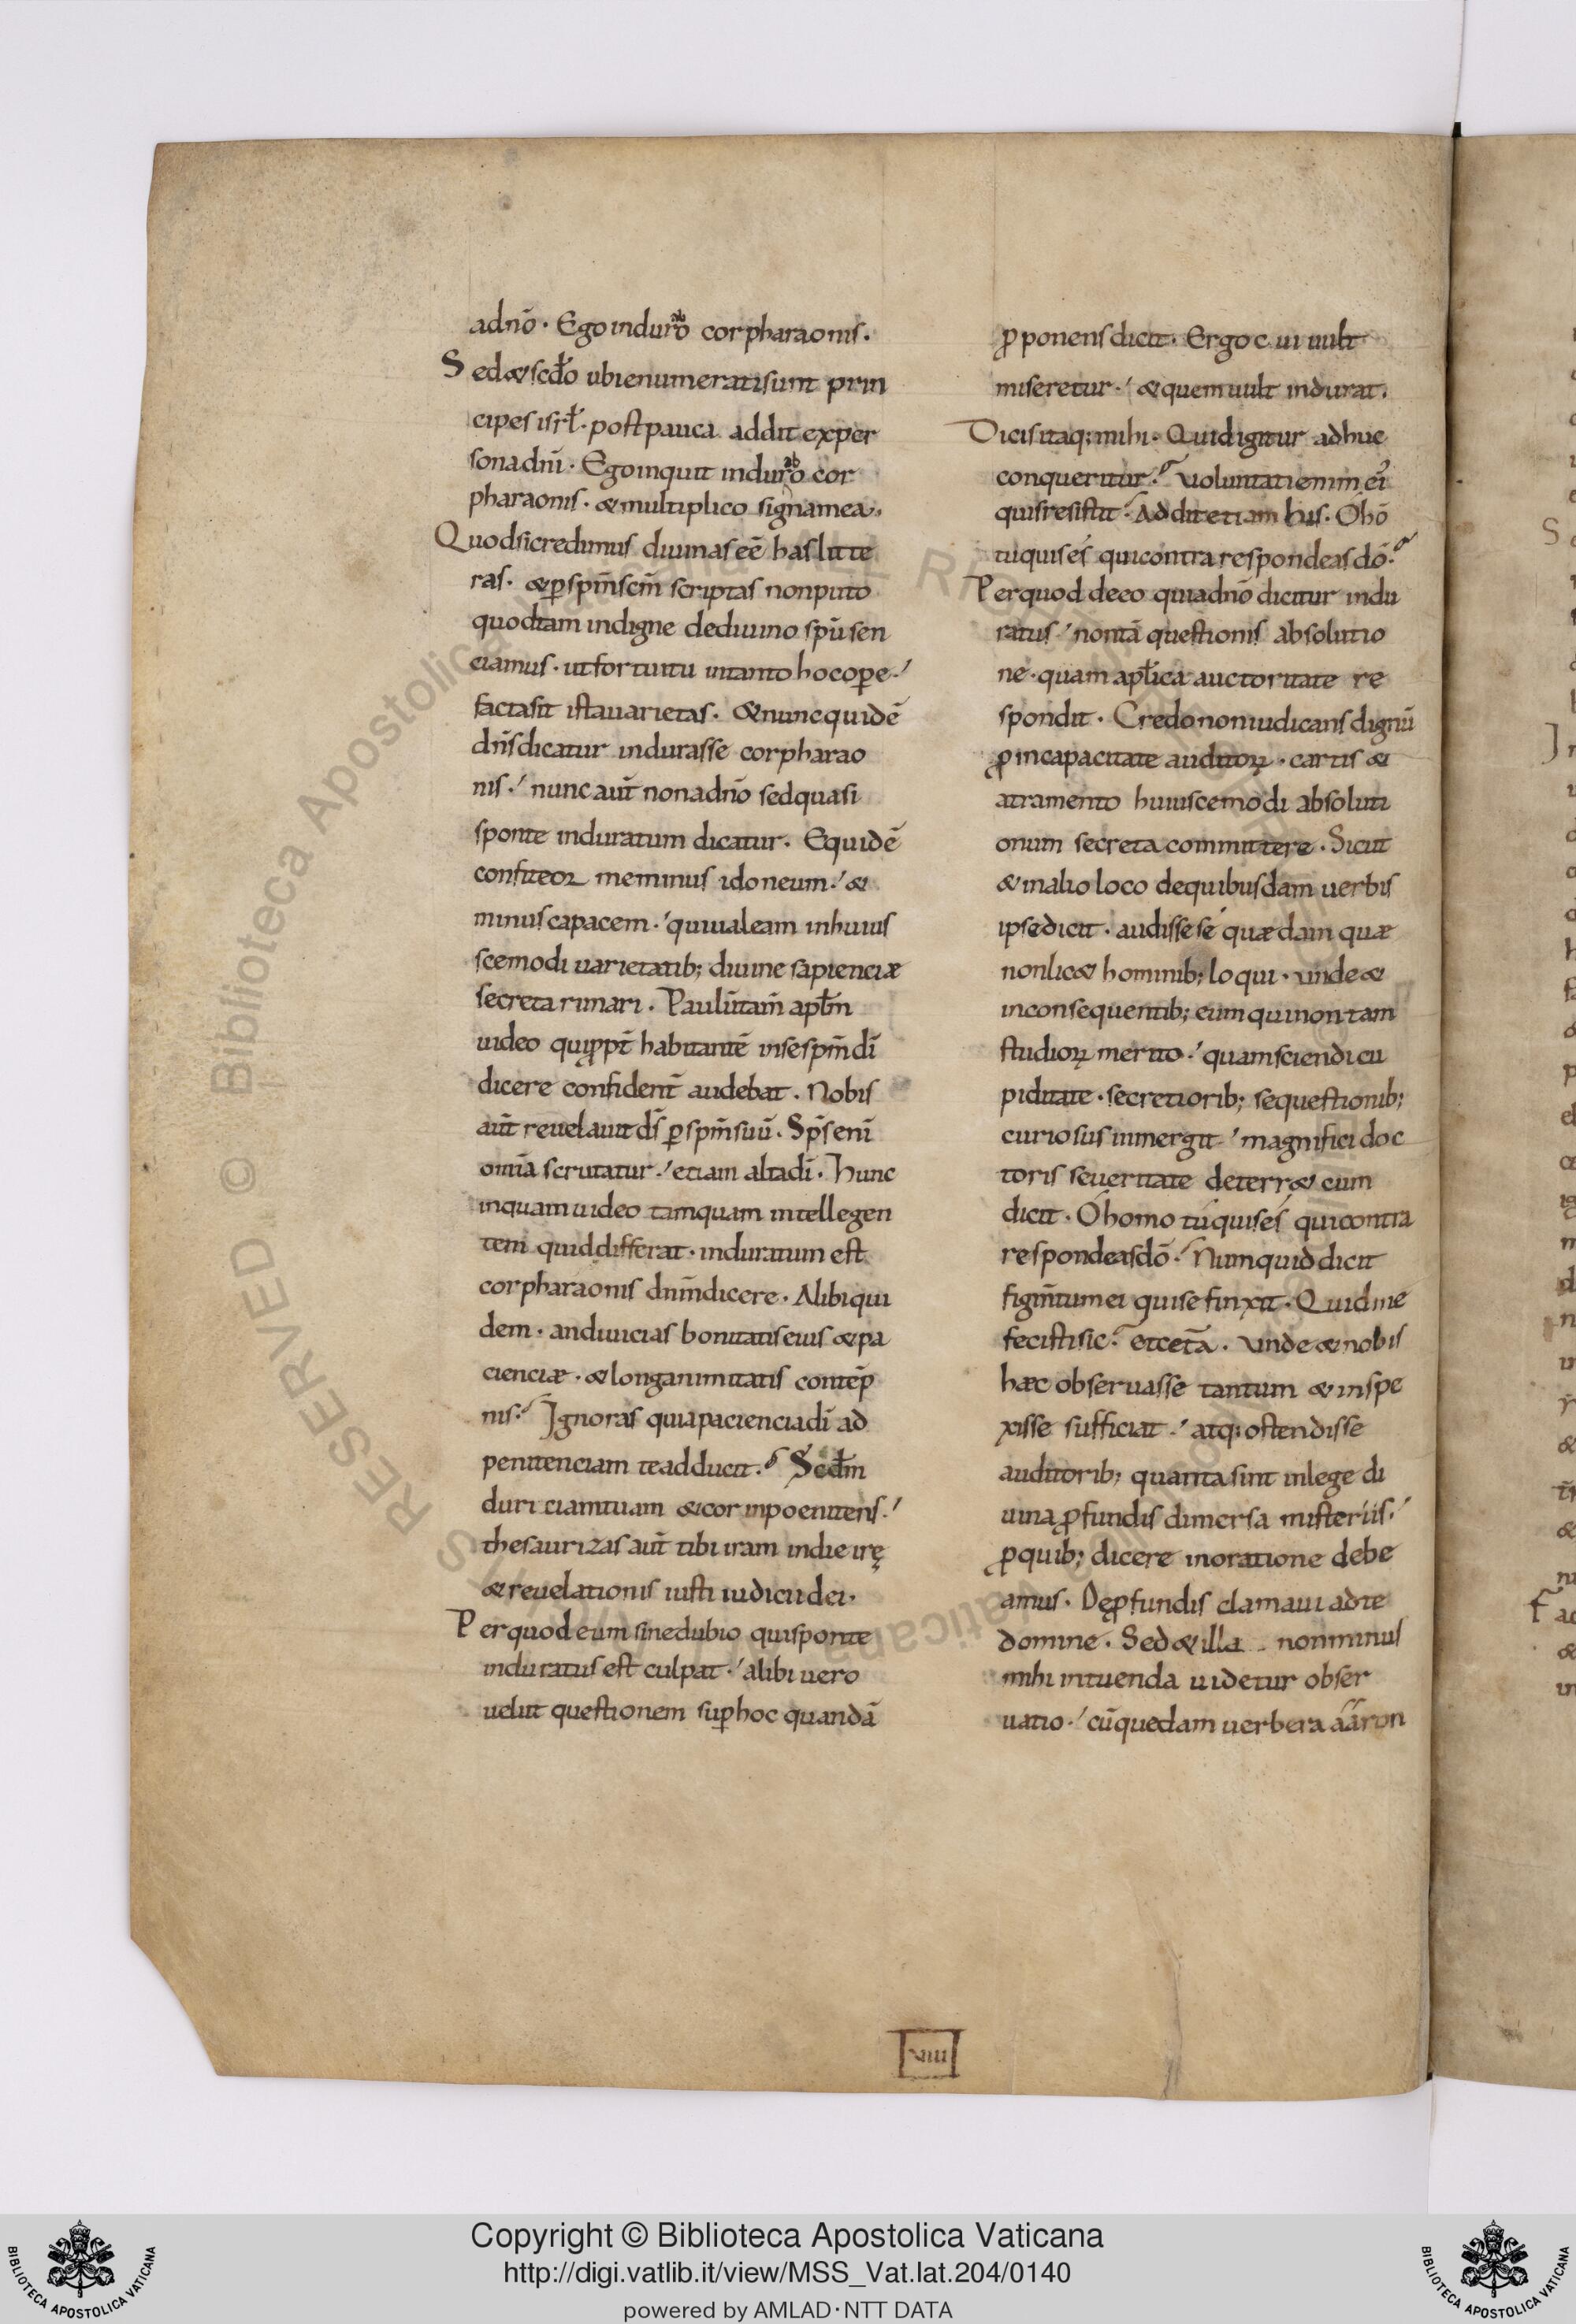 adnō · Ego induraboˉ cor pharaonis ·
Sed & scďo ubi enumerati sunt prin
cipes isrł · post pauca addit ex per
sona dnī · Ego inquit indurabo cor
pharaonis · & multiplico signa mea ·
Quod si credimus diuinas eē has litte
ras · & ꝑ spm̄ scm̄ scriptas non puto
quod tam indigne de diuino spū sen
ciamus · ut fortuitu in tanto hoc opere ·
facta sit ista uarietas · & nunc quidē
dn̄s dicatur indurasse cor pharao
nis · nunc aut̄ non adnō sed quasi
sponte induratum dicatur · Equidē
confiteor me minus idoneum · &
minus capacem · qui ualeam in huius
scemodi uarietatib; diuine sapienciæ
secreta rimari · Paulū tam̄ aptm̄
uideo qui ꝓpt̄ habitantē in se spm̄ dī
dicere confident̄ audebat · Nobis
aut̄ reuelauit ds̄ ꝑ spm̄ suū · Sps̄ enī
omīa scrutatur · etiam alta dī · Hunc
inquam uideo tamquam intellegen
tem quid differat · induratum est
cor pharaonis dnm̄ dicere · Alibi qui
dem · an diuicias bonitatis eius & pa
cienciæ · & longanimitatis contēp
nis · Ignoras quia paciencia dī ad
penitenciam te adducit · Scďm
duriciam tuam & cor inpoenitens ·
thesaurizas aut̄ tibi iram in die irę
& reuelationis iusti iudicii dei ·
Per quod eum sine dubio qui sponte
induratus est culpat · alibi uero
uelut questionem suꝑ hoc quandā
ꝓponens dicit · Ergo cui uult
miseretur · & quem uult indurat ·
Dicis itaq; mihi · Quid igitur adhuc
conqueritur · uoluntati enim eī
quis resistit · Addit etiam his · Ó hō
tu quis és qui contra respondeas dō ·
Per quod de eo qui adnō dicitur indu
ratus · non tā questionis absolutio
ne · quam apłica auctoritate re
spondit · Credo non iudicans dignū
ꝓ incapacitate auditoꝝ · cartis &
atramento huiuscemodi absoluti
onum secreta committere · Sicut
& in alio loco de quibusdam uerbis
ipse dicit · audisse se quædam quæ
non lic& hominib; loqui · unde &
in consequentib; eum qui non tam
studioꝝ merito · quam sciendi cu
piditate · secretiorib; se questionib;
curiosus inmergit · magnifici doc
toris seueritate deterr& cum
dicit · Ó homo tú quis és qui contra
respondeas dō · Numquid dicit
figm̄tum ei qui se finxit · Quid me
fecisti sic · et cetā · unde & nobis
hæc obseruasse tantum & inspe
xisse sufficiat · atq; ostendisse
auditorib; quanta sint in lege di
uina ꝓfundis dimersa misteriis ·
ꝓ quib; dicere in oratione debe
amus · De ꝓfundis clamaui ad te
domine · Sed & illa non minus
mihi intuenda uidetur obser
uatio · cū quedam uerbera aaron
VIIII
Copyright © Biblioteca Apostolica Vaticana
http://digi.vatlib.it/view/MSS_Vat.lat.204/0140
powered by AMLAD·NTT DATA
BIBLIOTECA APOSTOLICA VATICANA
BIBLIOTECA APOSTOLICA VATICANA